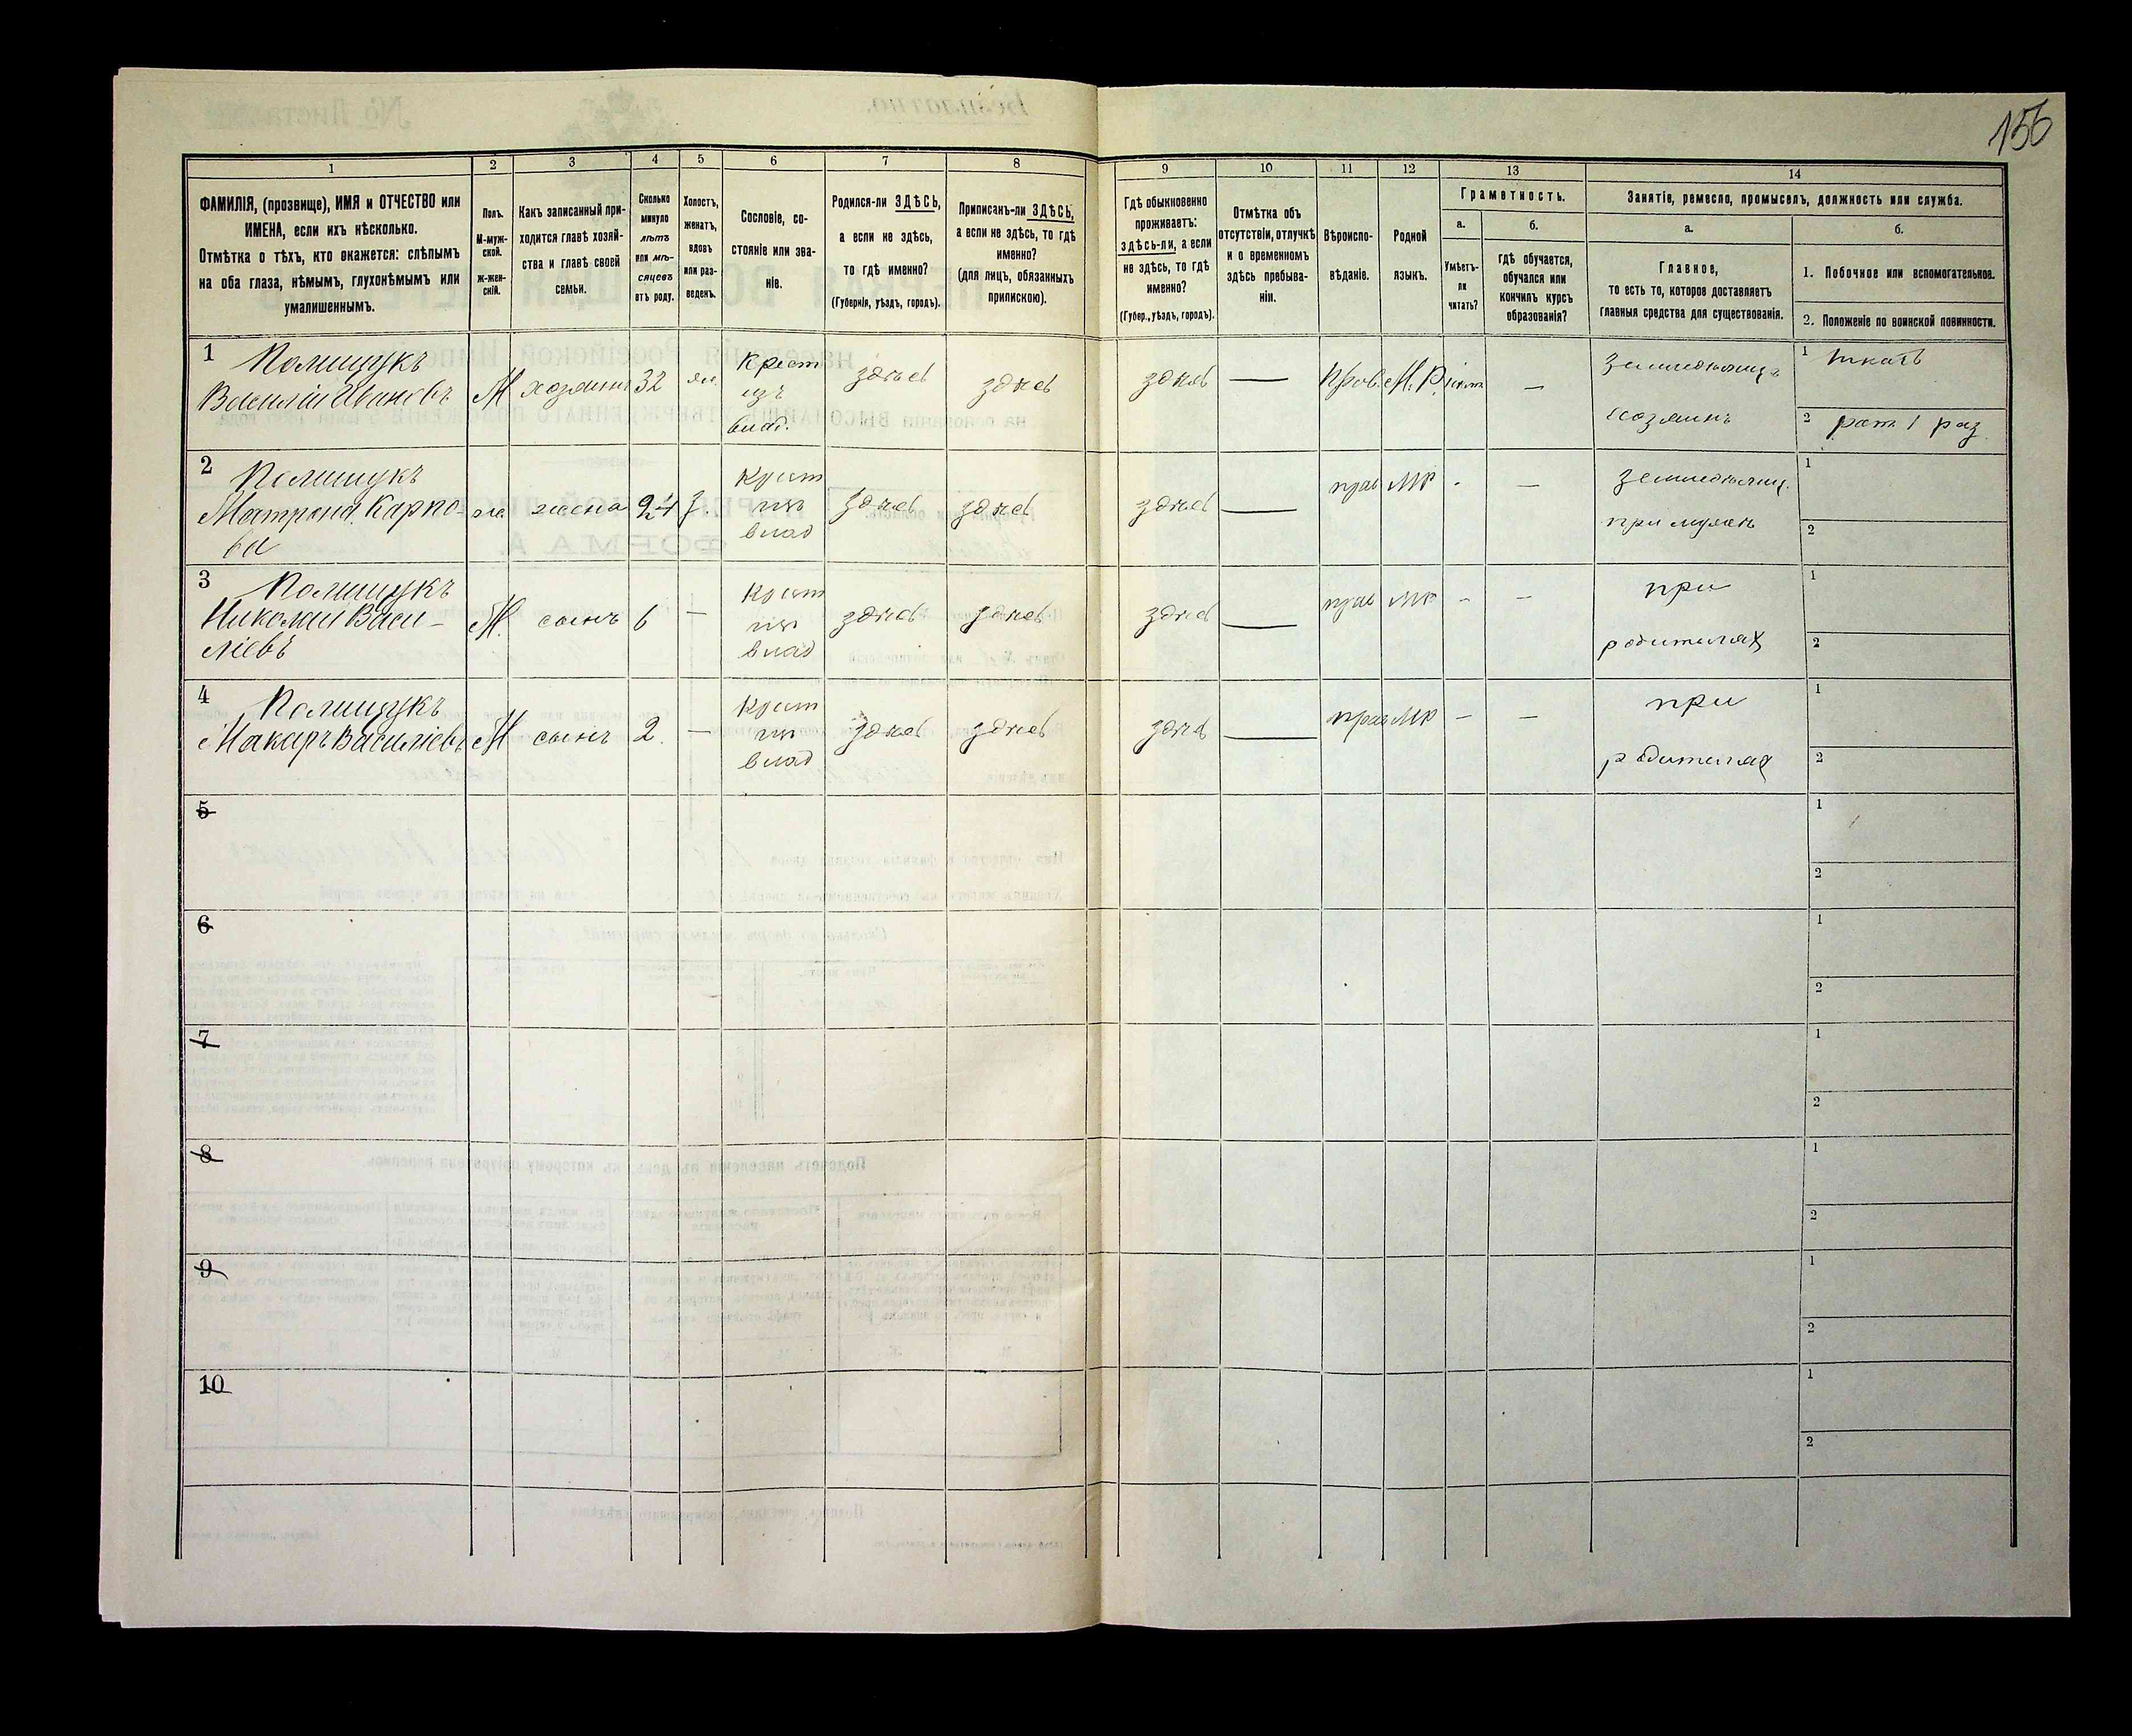 156
1
2
3
4
5
6
7
8
9
10
11
12
13
14
ФАМИЛІЯ, (прозвище), ИМЯ и ОТЧЕСТВО или
ИМЕНА, если ихъ нѣсколько.
Отмѣтка о тѣхъ, кто окажется: слѣпымъ
на оба глаза, нѣмымъ, глухонѣмымъ или
умалишеннымъ.
Полъ.
М-муж-
ской.
Ж-жен-
скій.
Какъ записанный при-
ходится главѣ хозяй-
ства и главѣ своей
семьи.
Сколько
минуло
лѣтъ
или мѣ-
сяцевъ
отъ роду.
Холостъ,
женатъ,
вдовъ
или раз-
веденъ.
Сословіе, со-
стояніе или зва-
ніе.
Родился-ли ЗДѢСЬ,
а если не здѣсь,
то гдѣ именно?
(Губернія, уѣздъ, городъ).
Приписанъ-ли ЗДѢСЬ,
а если не здѣсь, то гдѣ
именно?
(для лицъ, обязанныхъ
припискою).
Гдѣ обыкновенно
проживаетъ:
здѣсь-ли, а если
не здѣсь, то гдѣ
именно?
(Губер., уѣздъ, городъ).
Отмѣтка объ
отсутствіи, отлучкѣ
и о временномъ
здѣсь пребыва-
ніи.
Вѣроиспо-
вѣданіе.
Родной
языкъ.
Грамотность.
а.
Умѣетъ-
ли
читать?
б.
гдѣ обучается,
обучался или
кончилъ курсъ
образованія?
Занятіе, ремесло, промыселъ, должность или служба.
а.
Главное,
то есть то, которое доставляетъ
главныя средства для существованія.
б.
1. Побочное или вспомогательное.
2. Положеніе по воинской повинности.
1 Полищукъ
Василій Ивановъ
М
хозяинъ
32
жен.
Крест
изъ
влад.
здѣсь
здѣсь
здѣсь
—
Прав.
М. Р.
—
земледѣлецъ
хозяинъ
1 ткачъ
2 рат 1 раз
2 Полищукъ
Матрона Карпо-
ва
ж
жена
24
з.
Крест
изъ
влад
здѣсь
здѣсь
здѣсь
—
прав
МР
-
—
земледѣлец.
при мужѣ
1
2
3 Полищукъ
Николай Васи-
ліевъ
М.
сынъ
6
—
Крест
изъ
влад
здѣсь
здѣсь
здѣсь
—
прав
МР
-
—
при
родителях
1
2
4 Полищукъ
Макаръ Василіевъ
М
сынъ
2.
—
Крест
изъ
влад
здѣсь
здѣсь
здѣсь
—
прав
МР
—
—
при
родителях
1
2
5
1
2
6
1
2
7
1
2
8
1
2
9
1
2
10
1
2